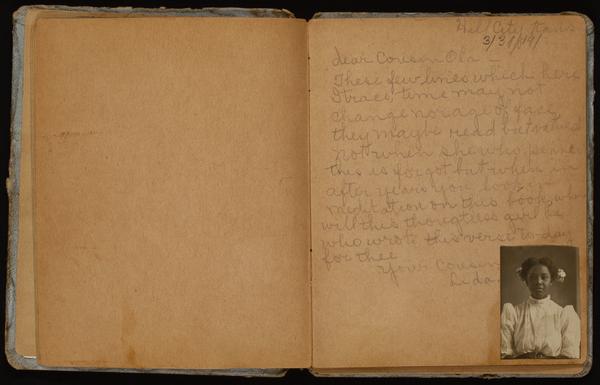 Hill City, Kans
3/31/191
dear Cousin Ola -
These few lines which here
I trace, time may not
change nor age of face
they may be read but
not when she who
this is forgot but when in
after years you look in
meditation on this book
will this thougtless girl be
who wrote this verse to-day
for thee
Your Cousin
Lida.